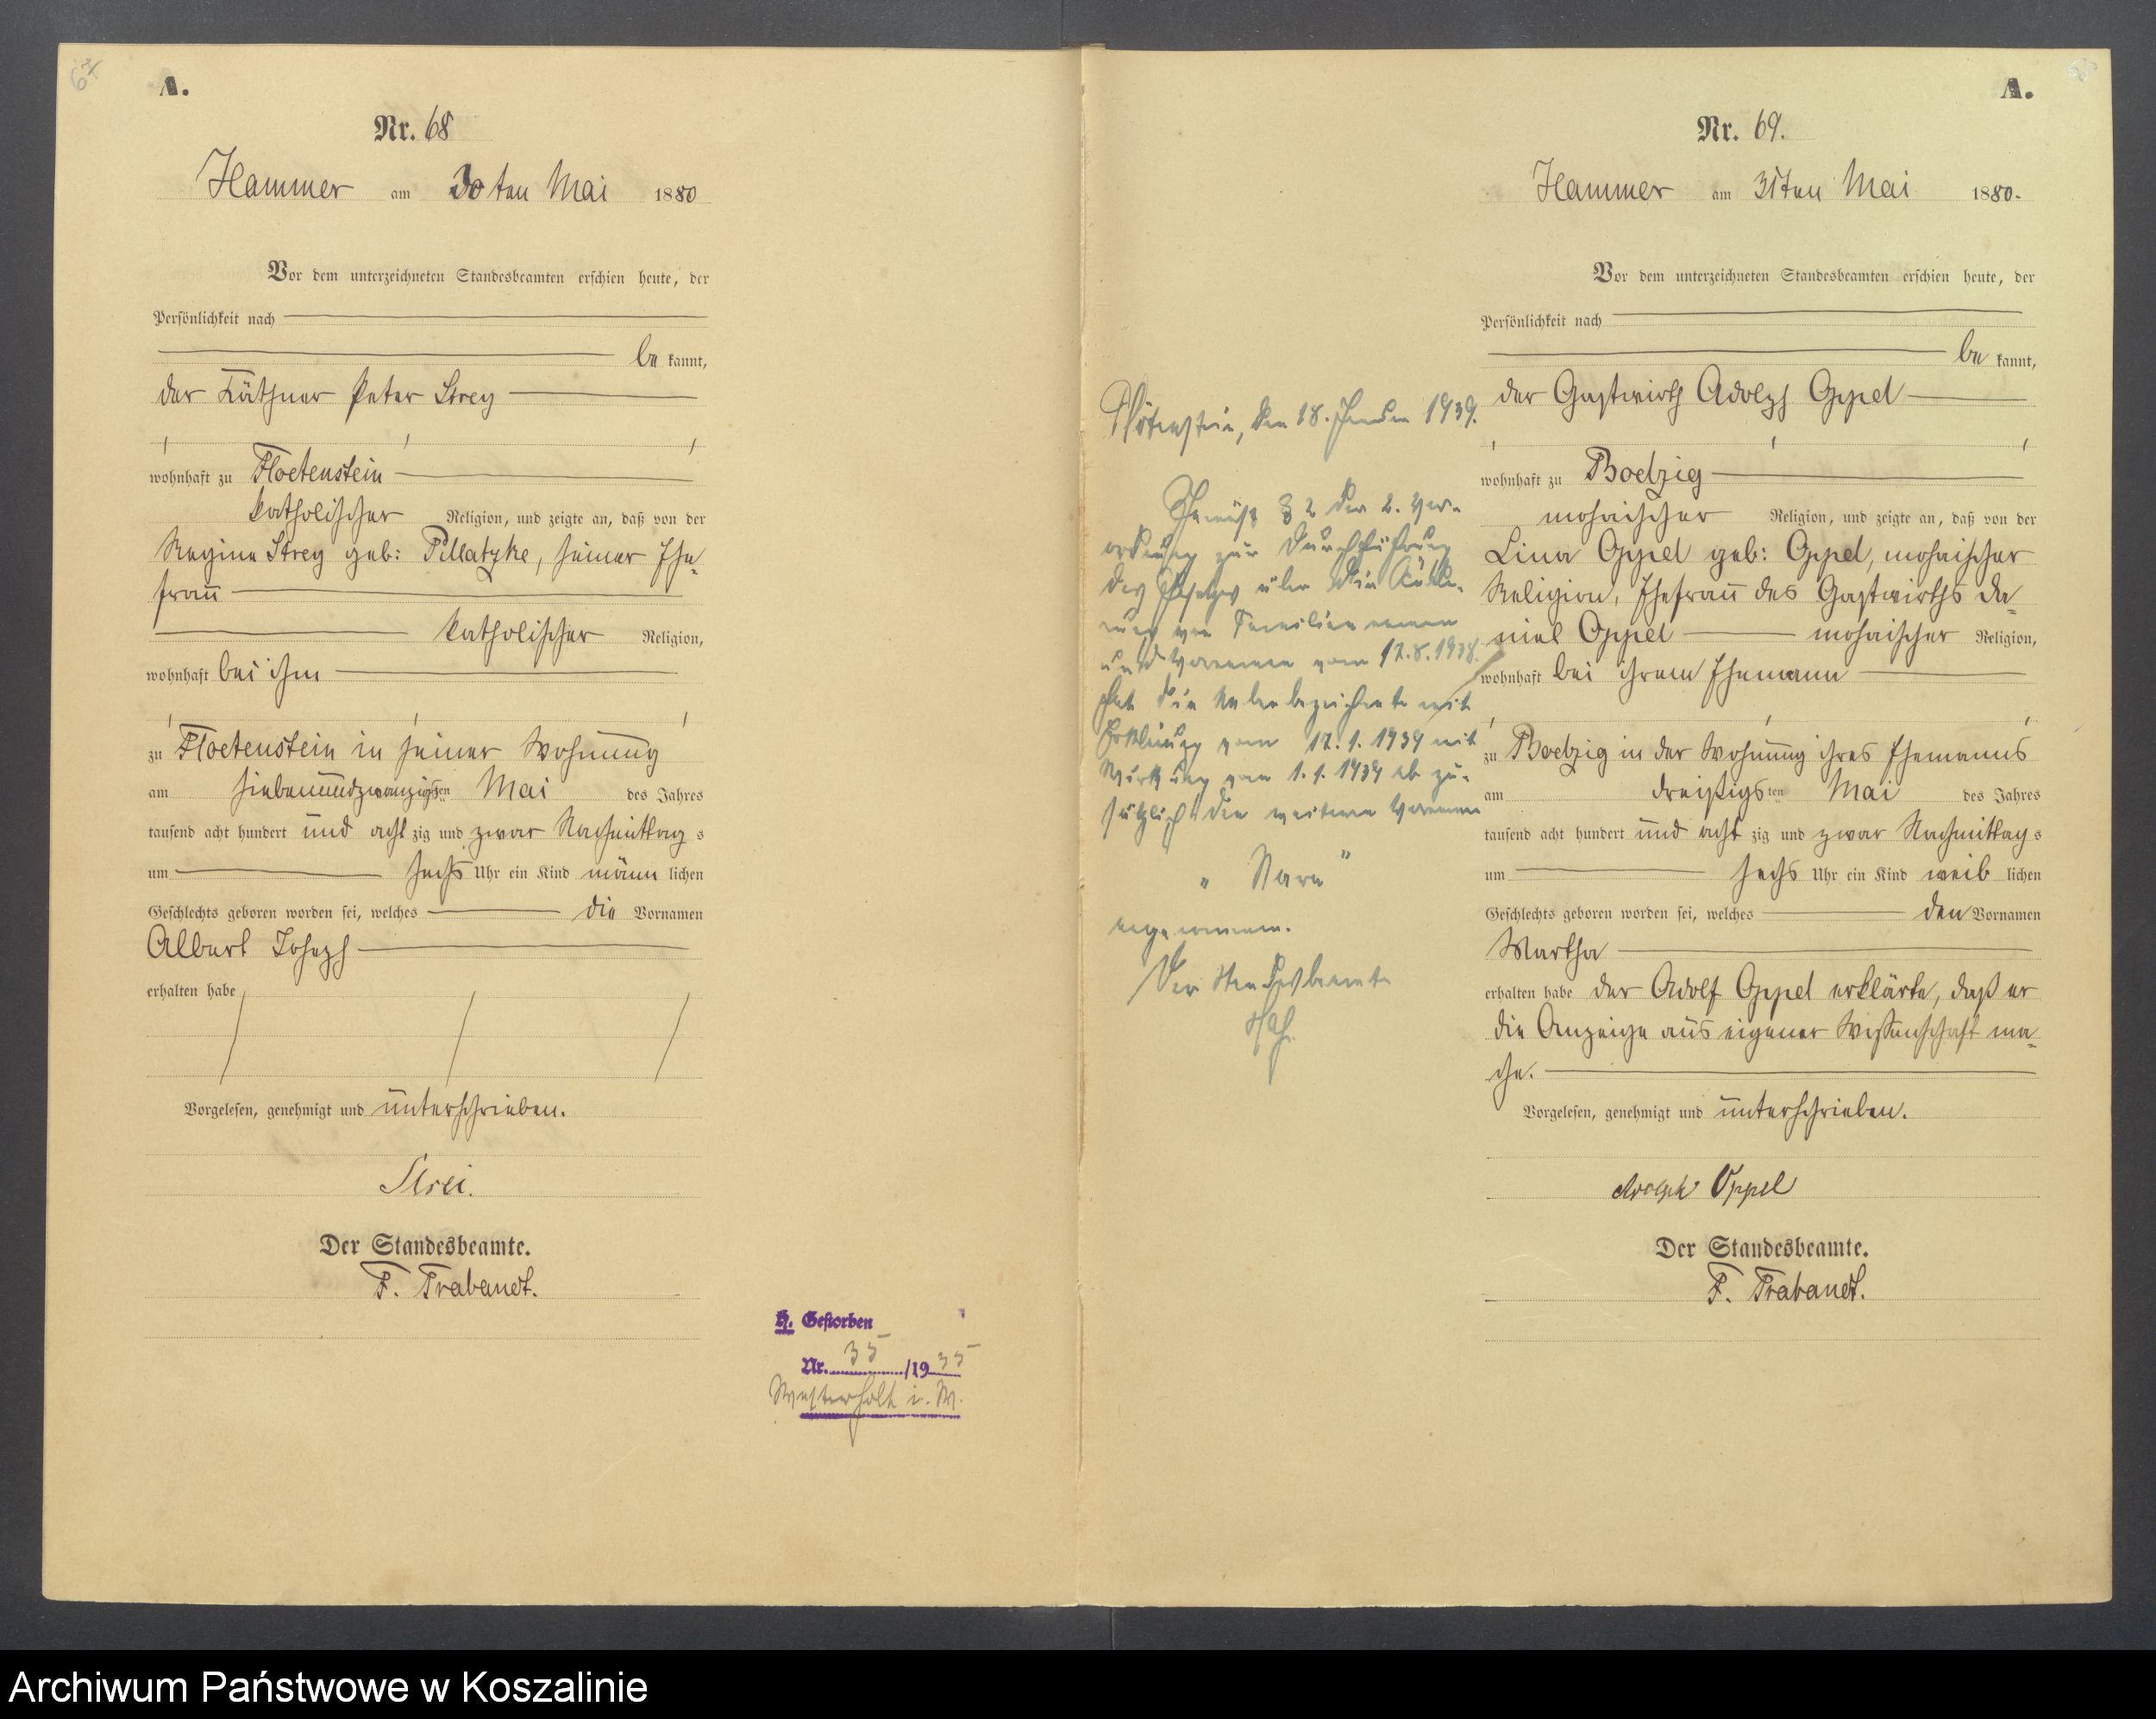 67
A.
Nr. 68
Hammer am 30ten Mai 1880
Vor dem unterzeichneten Standesbeamten erschien heute, der
Persönlichkeit nach
be kannt,
der Käthner Peter Strey
wohnhaft zu Floetenstein
katholischer Religion, und zeigte an, daß von der
Regine Strey geb: Pillatzke, seiner Ehe-
frau
katholischer Religion,
wohnhaft bei ihm
zu Floetenstein in seiner Wohnung
am siebenundzwanzigsten Mai des Jahres
tausend acht hundert und acht zig und zwar Nachmittag s
um sechs Uhr ein Kind männ lichen
Geschlechts geboren worden sei, welches die Vornamen
Albert Joseph
erhalten habe
Vorgelesen, genehmigt und unterschrieben.
Strei.
Der Standesbeamte.
F. Trabandt.
Gestorben
Nr. 35 /19 35
Westerholt i. W.
A.
Nr. 69.
Hammer am 31ten Mai 1880.
Vor dem unterzeichneten Standesbeamten erschien heute, der
Persönlichkeit nach
be kannt,
der Gastwirth Adolph Oppel
wohnhaft zu Boelzig
mosaischer Religion, und zeigte an, daß von der
Lina Oppel geb: Oppel, mosaischer
Religion, Ehefrau des Gastwirths Da-
niel Oppel mosaischer Religion,
wohnhaft bei ihrem Ehemann
zu Boelzig in der Wohnung ihres Ehemanns
am dreißigsten Mai des Jahres
tausend acht hundert und acht zig und zwar Nachmittag s
um sechs Uhr ein Kind weib lichen
Geschlechts geboren worden sei, welches den Vornamen
Martha
erhalten habe der Adolf Oppel erklärte, daß er
die Anzeige aus eigener Wissenschaft ma-
che.
Vorgelesen, genehmigt und unterschrieben.
Adolph Oppel
Der Standesbeamte.
F. Trabandt.
Flötenstein, den 18. Januar 1939.
Gemäß § 2 der 2. Ver-
ordnung zur Durchführung
des Gesetzes über die Ände-
rung von Familiennamen
und Vornamen vom 17.8.1938
hat die Nebenbezeichnete mit
Erklärung vom 17.1.1939 mit
Wirkung vom 1.1.1939 ab zu-
sätzlich den weiteren Vornamen
„Sara"
angenommen.
Der Standesbeamte
Archiwum Państwowe w Koszalinie